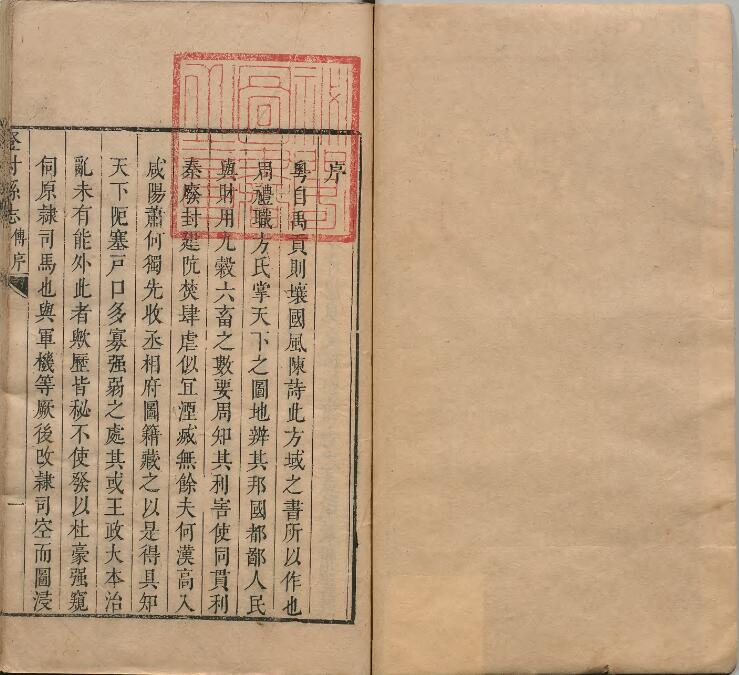 序
粵自禹貢則壤國風陳詩此方域之書所以作也
周禮職方氏掌天下之圖地辨其邦國都鄙人民
與財用九穀六畜之數要周知其利害使同貫利
秦廢封建阬焚肆虐似冝湮滅無餘夫何漢高入
咸陽蕭何獨先收丞相府圖籍藏之以是得具知
天下阨塞戸口多寡强弱之處其或王政大本治
亂未有能外此者歟歷皆秘不使發以杜豪强窺
伺原隸司馬也與軍機等厥後改隸司空而圖浸
登封縣志 傅序 一